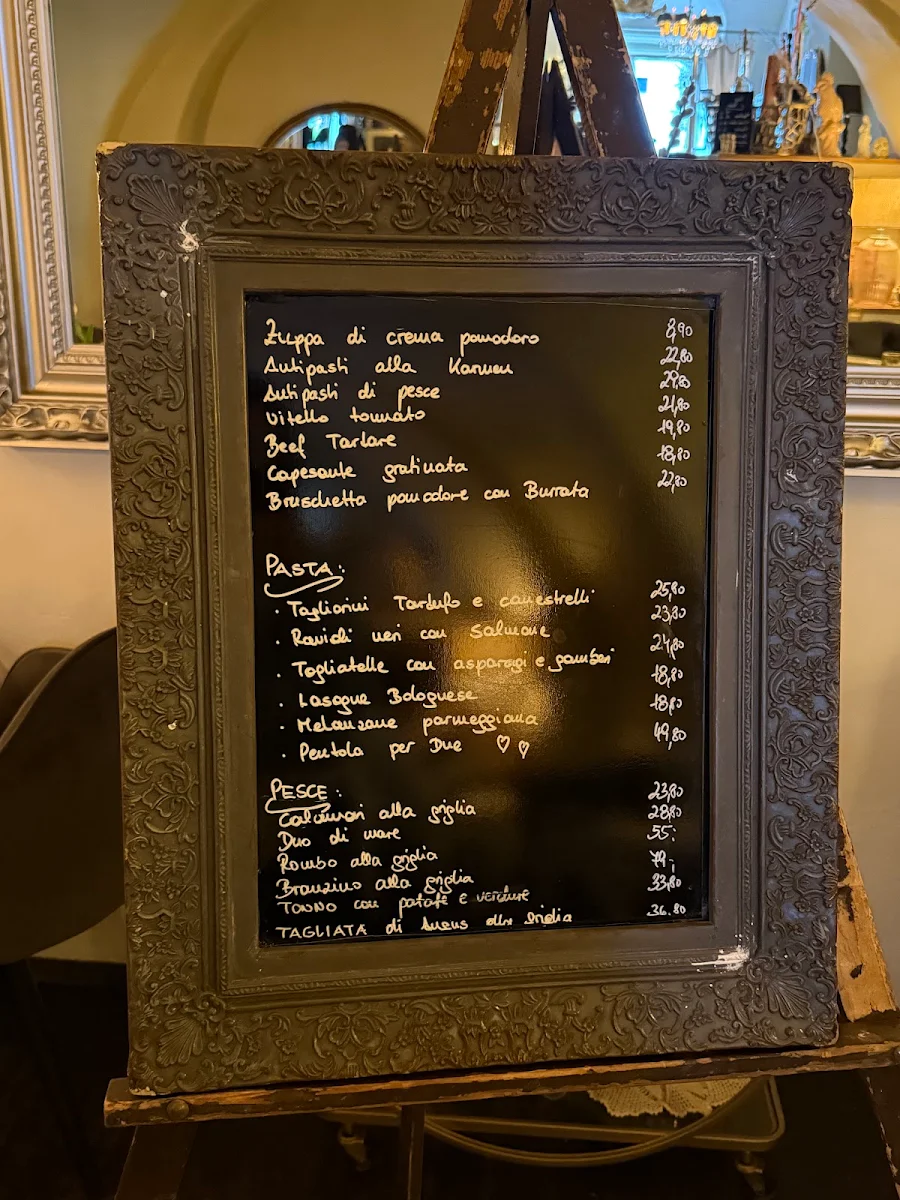 Zuppa di crema pomodoro 8,90
Antipasti alla Karmen 22,80
Antipasti di pesce 29,80
Vitello tonnato 21,80
Beef Tartare 19,80
Capesante gratinata 18,80
Bruschetta pomodore con Burrata 22,80
PASTA:
· Tagliorini Tartufo e canestrelli 25,80
· Ravioli neri con Salmone 23,80
· Tagliatelle con asparagi e gamberi 24,80
· Lasagne Bolognese 18,80
· Melanzane parmeggiana 18,80
· Pentola per Due ♡ ♡ 49,80
PESCE:
Calamari alla griglia 23,80
Duo di mare 28,80
Rombo alla griglia 55.-
Branzino alla griglia 79,-
TONNO con patate e verdure 33,80
TAGLIATA di alla griglia 36.80